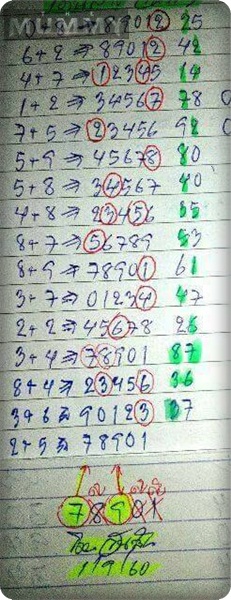 MUMMY
89012 25
6+2⇒89012 42
4+7⇒12345 14
1+2⇒34567 78
7+5⇒23456 92
5+9⇒45678 80
5+8⇒34567 40
4+8⇒23456 35
8+7⇒56789 53
8+9⇒78901 61
3+7⇒01234 47
2+2⇒45678 26
3+4⇒78901 87
8+4⇒23456 36
3+6⇒90123 37
2+5⇒78901
78901
1 9 60